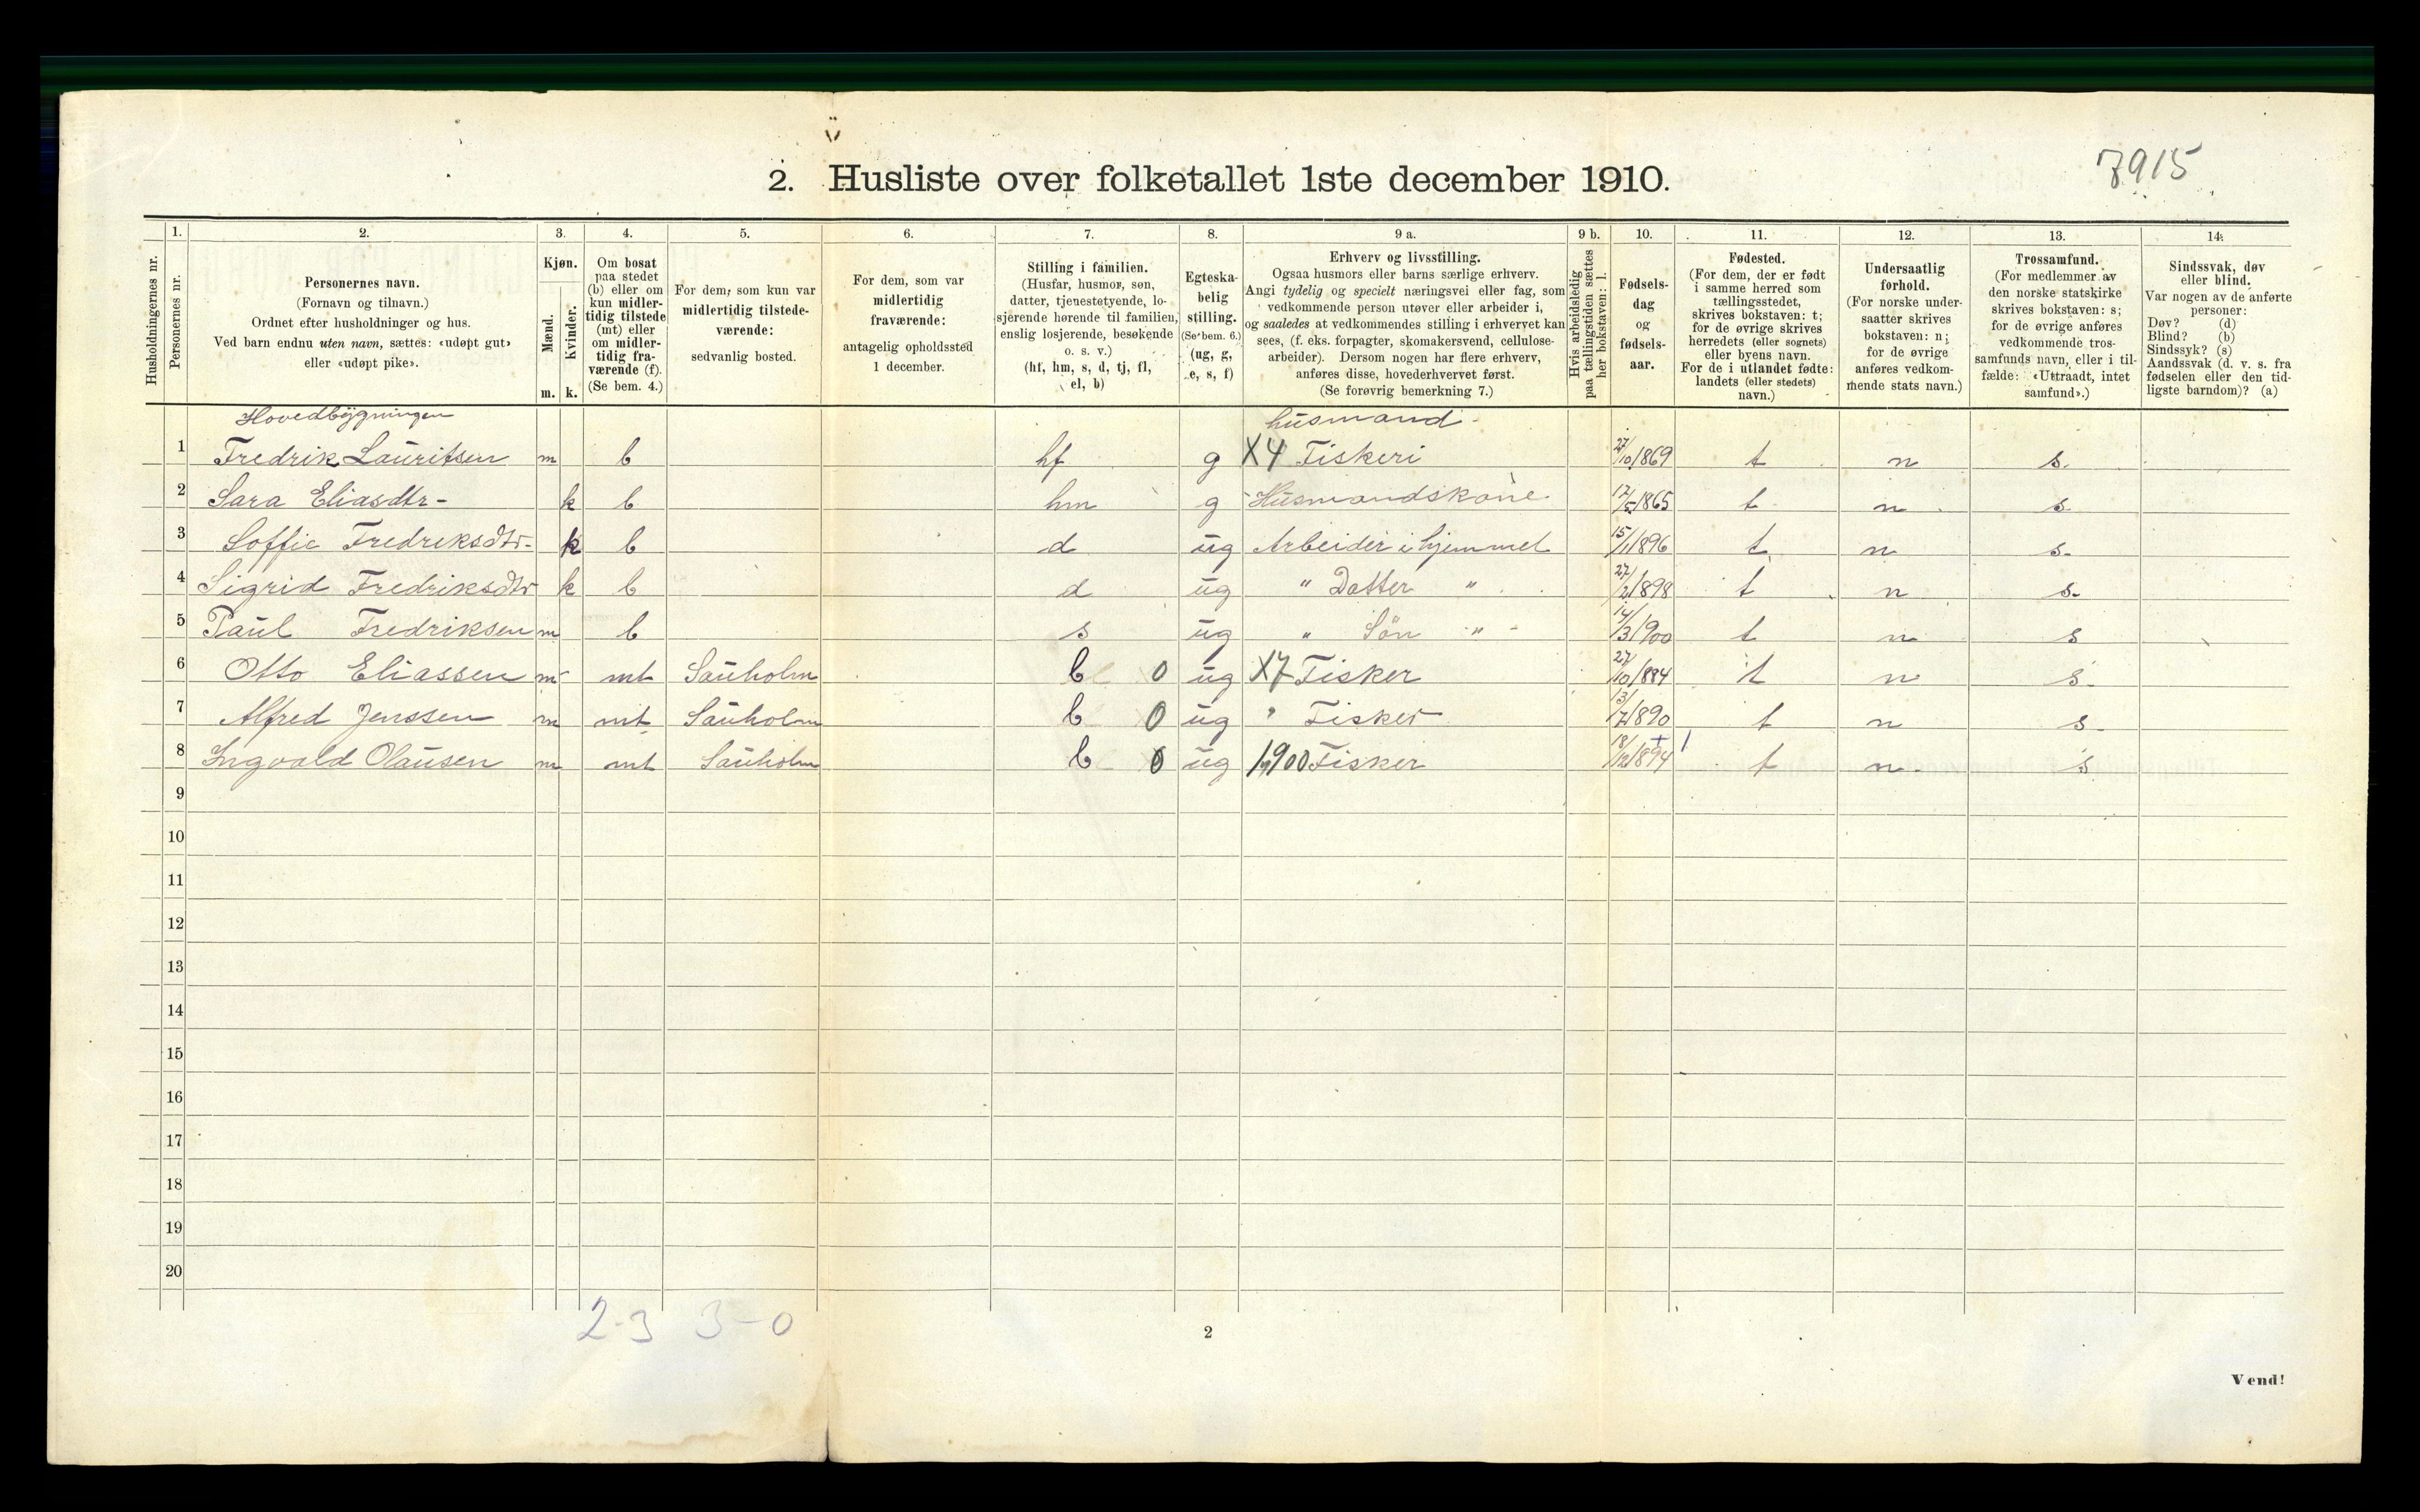 7915
2. Husliste over folketallet 1ste december 1910.
Husholdningernes nr.
1. Personernes nr.
2. Personernes navn. (Fornavn og tilnavn.) Ordnet efter husholdninger og hus. Ved barn endnu uten navn, sættes: «udøpt gut» eller «udøpt pike».
3. Kjøn. Mænd. m. Kvinder. k.
4. Om bosat paa stedet (b) eller om kun midlertidig tilstede (mt) eller om midlertidig fraværende (f). (Se bem. 4.)
5. For dem, som kun var midlertidig tilstedeværende: sedvanlig bosted.
6. For dem, som var midlertidig fraværende: antagelig opholdssted 1 december.
7. Stilling i familien. (Husfar, husmor, søn, datter, tjenestetyende, losjerende hørende til familien, enslig losjerende, besøkende o. s. v.) (hf, hm, s, d, tj, fl, el, b)
8. Egteskabelig stilling. (Se bem. 6.) (ug, g, e, s, f)
9 a. Erhverv og livsstilling. Ogsaa husmors eller barns særlige erhverv. Angi tydelig og specielt næringsvei eller fag, som vedkommende person utøver eller arbeider i, og saaledes at vedkommendes stilling i erhvervet kan sees, (f. eks. forpagter, skomakersvend, cellulosearbeider). Dersom nogen har flere erhverv, anføres disse, hovederhvervet først. (Se forøvrig bemerkning 7.)
9 b. Hvis arbeidsledig paa tællingstiden sættes her bokstaven: l.
10. Fødselsdag og fødselsaar.
11. Fødested. (For dem, der er født i samme herred som tællingsstedet, skrives bokstaven: t; for de øvrige skrives herredets (eller sognets) eller byens navn. For de i utlandet fødte: landets (eller stedets) navn.)
12. Undersaatlig forhold. (For norske undersaatter skrives bokstaven: n; for de øvrige anføres vedkommende stats navn.)
13. Trossamfund. (For medlemmer av den norske statskirke skrives bokstaven: s; for de øvrige anføres vedkommende trossamfunds navn, eller i tilfælde: «Uttraadt, intet samfund».)
14. Sindssvak, døv eller blind. Var nogen av de anførte personer: Døv? (d) Blind? (b) Sindssyk? (s) Aandssvak (d. v. s. fra fødselen eller den tidligste barndom)? (a)
Hovedbygningen husmand
1 Fredrik Lauritsen m b hf g X4 Fiskeri 27/10 1869 t n s
2 Sara Eliasdtr- k b hm g Husmandskone 17/5 1865 t n s
3 Soffie Fredreksdtr- k b d ug Arbeider i hjemmet 15/1 1896 t n s
4 Sigrid Fredriksdtr k b d ug " Datter " 27/2 1898 t n s
5 Paul Fredriksen m b s ug " Søn " 14/3 1900 t n s
6 Otto Eliassen m mt Sauholm b 0 ug X7 Fisker 27/10 1884 t n s
7 Alfred Jenssen m mt Sauholm b 0 ug " Fisker 13/7 1890 t n s
8 Ingvald Olausen m mt Sauholm b 0 ug 1900 Fisker 18/12 1894 t n s
9
10
11
12
13
14
15
16
17
18
19
20
2-3 3-0
2
Vend!